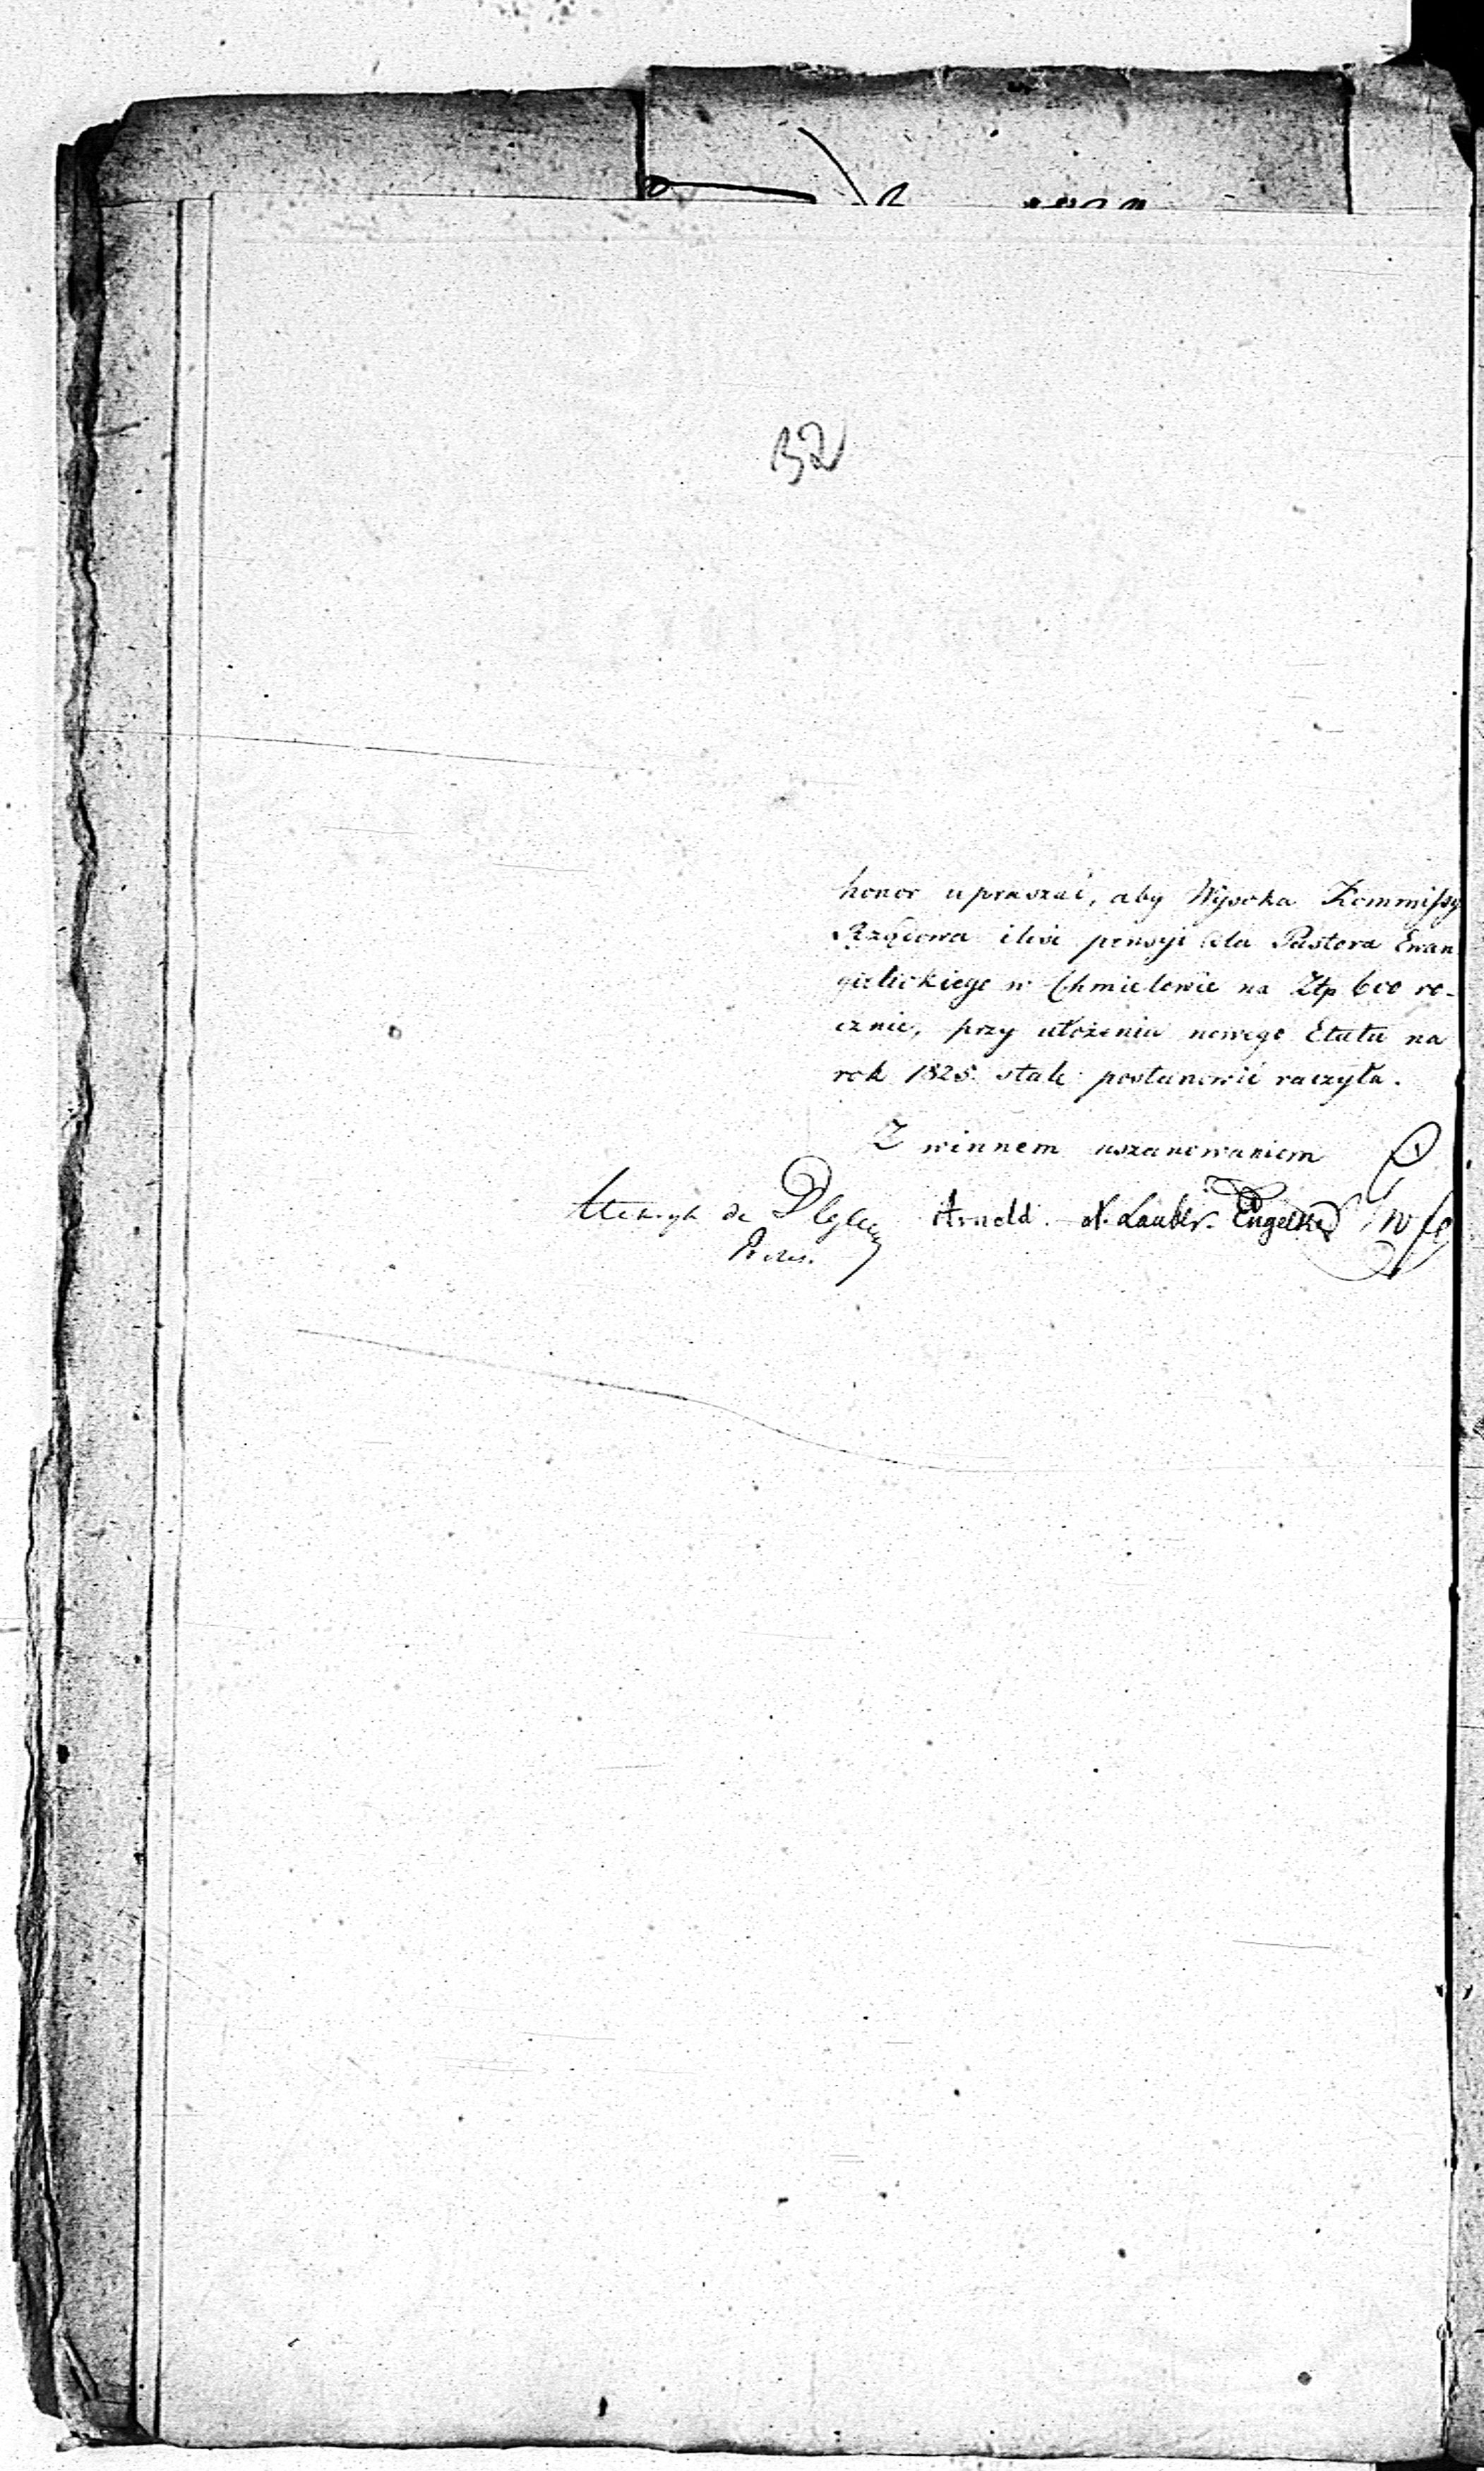 32
honor upraszać, aby Wysoka Kommissy
Rządowa ilość pensyi dla Pastora Ewan
gielickiego w Chmielowie na Złp 600 ro-
cznie, przy ułożeniu nowego Etatu na
rok 1825. stale postanowić raczyła.
Z winnem uszanowaniem
de Arnold. Lauber. Engelke
Prezes.